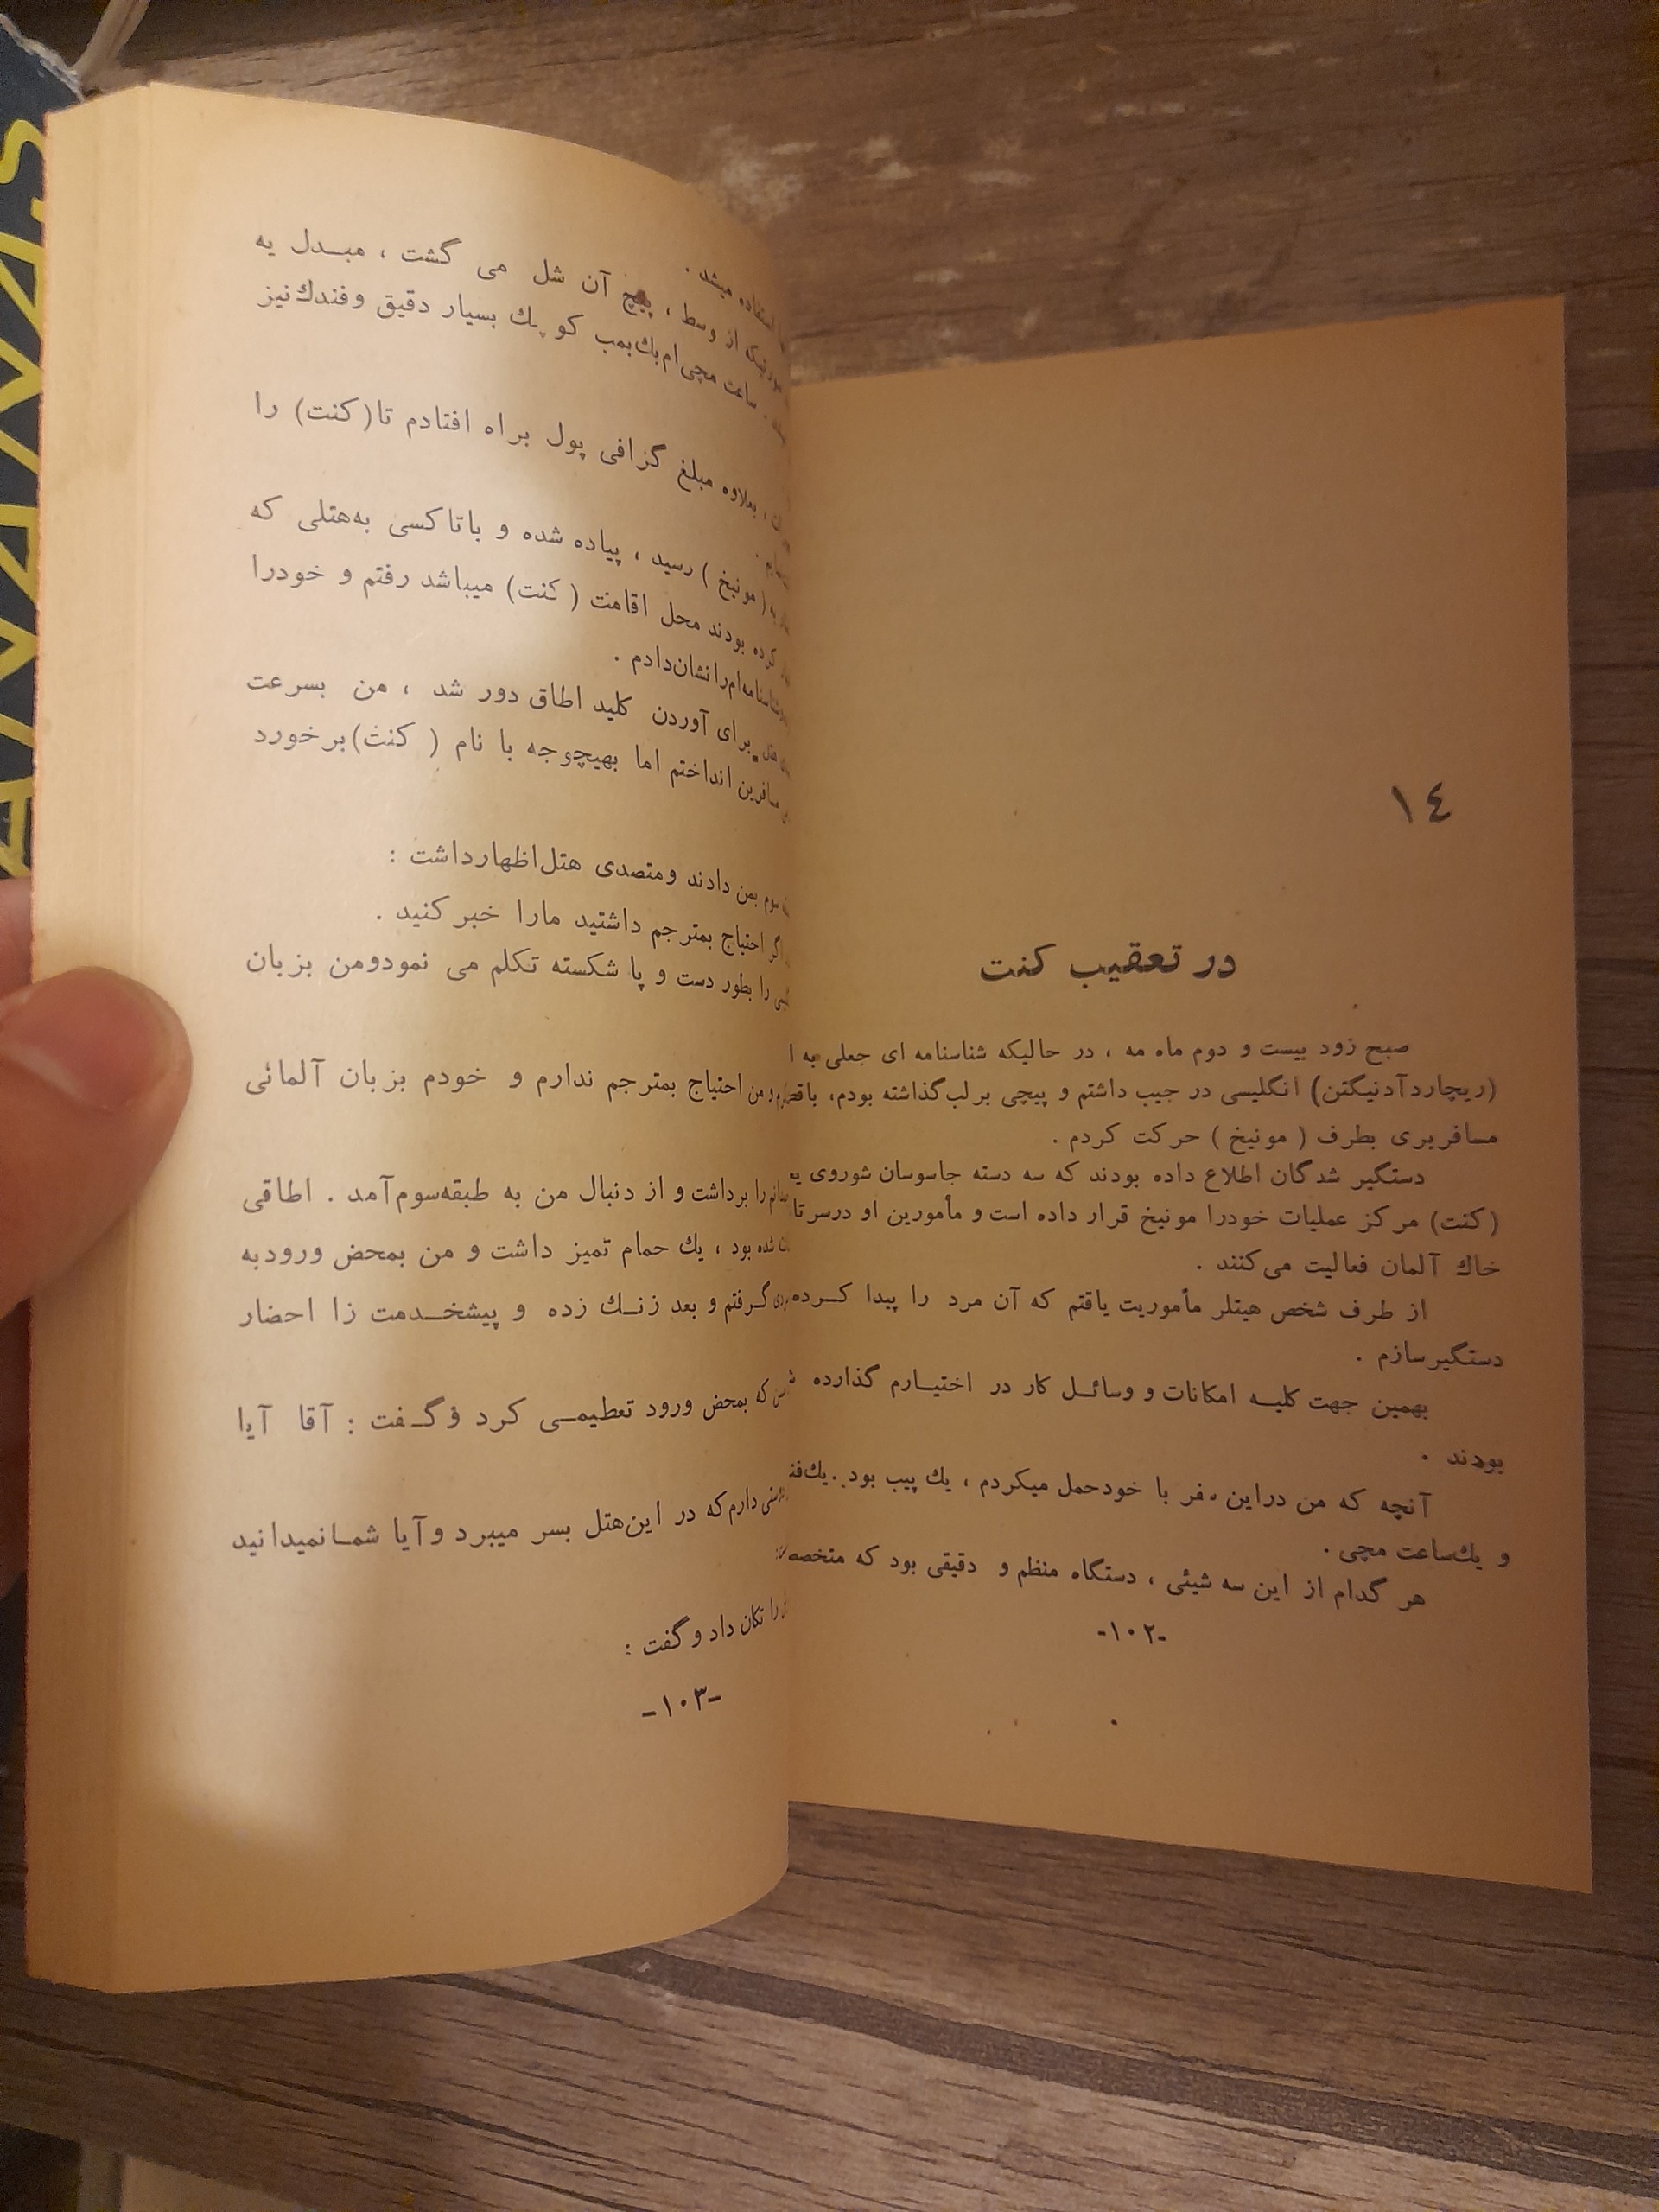 ١٤
در تعقیب کنت
صبح زود بیست و دوم ماه مه ، در حالیکه شناسنامه ای جعلی به
(ریچارد آدنیگتن) انگلیسی در جیب داشتم و پیچی بر لب گذاشته بودم،
مسافربری بطرف ( مونیخ ) حرکت کردم .
دستگیر شدگان اطلاع داده بودند که سه دسته جاسوسان شوروی
(کنت) مرکز عملیات خودرا مونیخ قرار داده است و مأمورین او
خاك آلمان فعالیت می‌کنند .
از طرف شخص هیتلر مأموریت یافتم که آن مرد را پیدا کرده
دستگیر سازم .
بهمین جهت کلیه امکانات و وسائل کار در اختیارم گذارده
بودند .
آنچه که من در این سفر با خود حمل میکردم ، یك پیپ بود .
و یك ساعت مچی .
هر گدام از این سه شیئی ، دستگاه منظم و دقیقی بود که
-١٠٢-
استفاده میشد .
از وسط ، پیچ آن شل می گشت ، مبدل یه
ساعت مچی ام یك بمب کوچك بسیار دقیق و فندك نیز
، بعلاوه مبلغ گزافی پول براه افتادم تا (کنت) را
( مونیخ ) رسید ، پیاده شده و با تاکسی به هتلی که
کرده بودند محل اقامت ( کنت) میباشد رفتم و خودرا
را نشان دادم .
برای آوردن کلید اطاق دور شد ، من بسرعت
مسافرین انداختم اما بهیچوجه با نام ( کنت) برخورد
سوم بمن دادند و متصدی هتل اظهار داشت :
اگر احتیاج بمترجم داشتید مارا خبر کنید .
را بطور دست و پا شکسته تکلم می نمود و من بزبان
و من احتیاج بمترجم ندارم و خودم بزبان آلمانی
را برداشت و از دنبال من به طبقه سوم آمد . اطاقی
شده بود ، یك حمام تمیز داشت و من بمحض ورود به
گرفتم و بعد زنك زده و پیشخدمت زا احضار
که بمحض ورود تعظیمی کرد و گفت : آقا آیا
دارم که در این هتل بسر میبرد و آیا شما نمیدانید
را تکان داد و گفت :
-١٠٣-